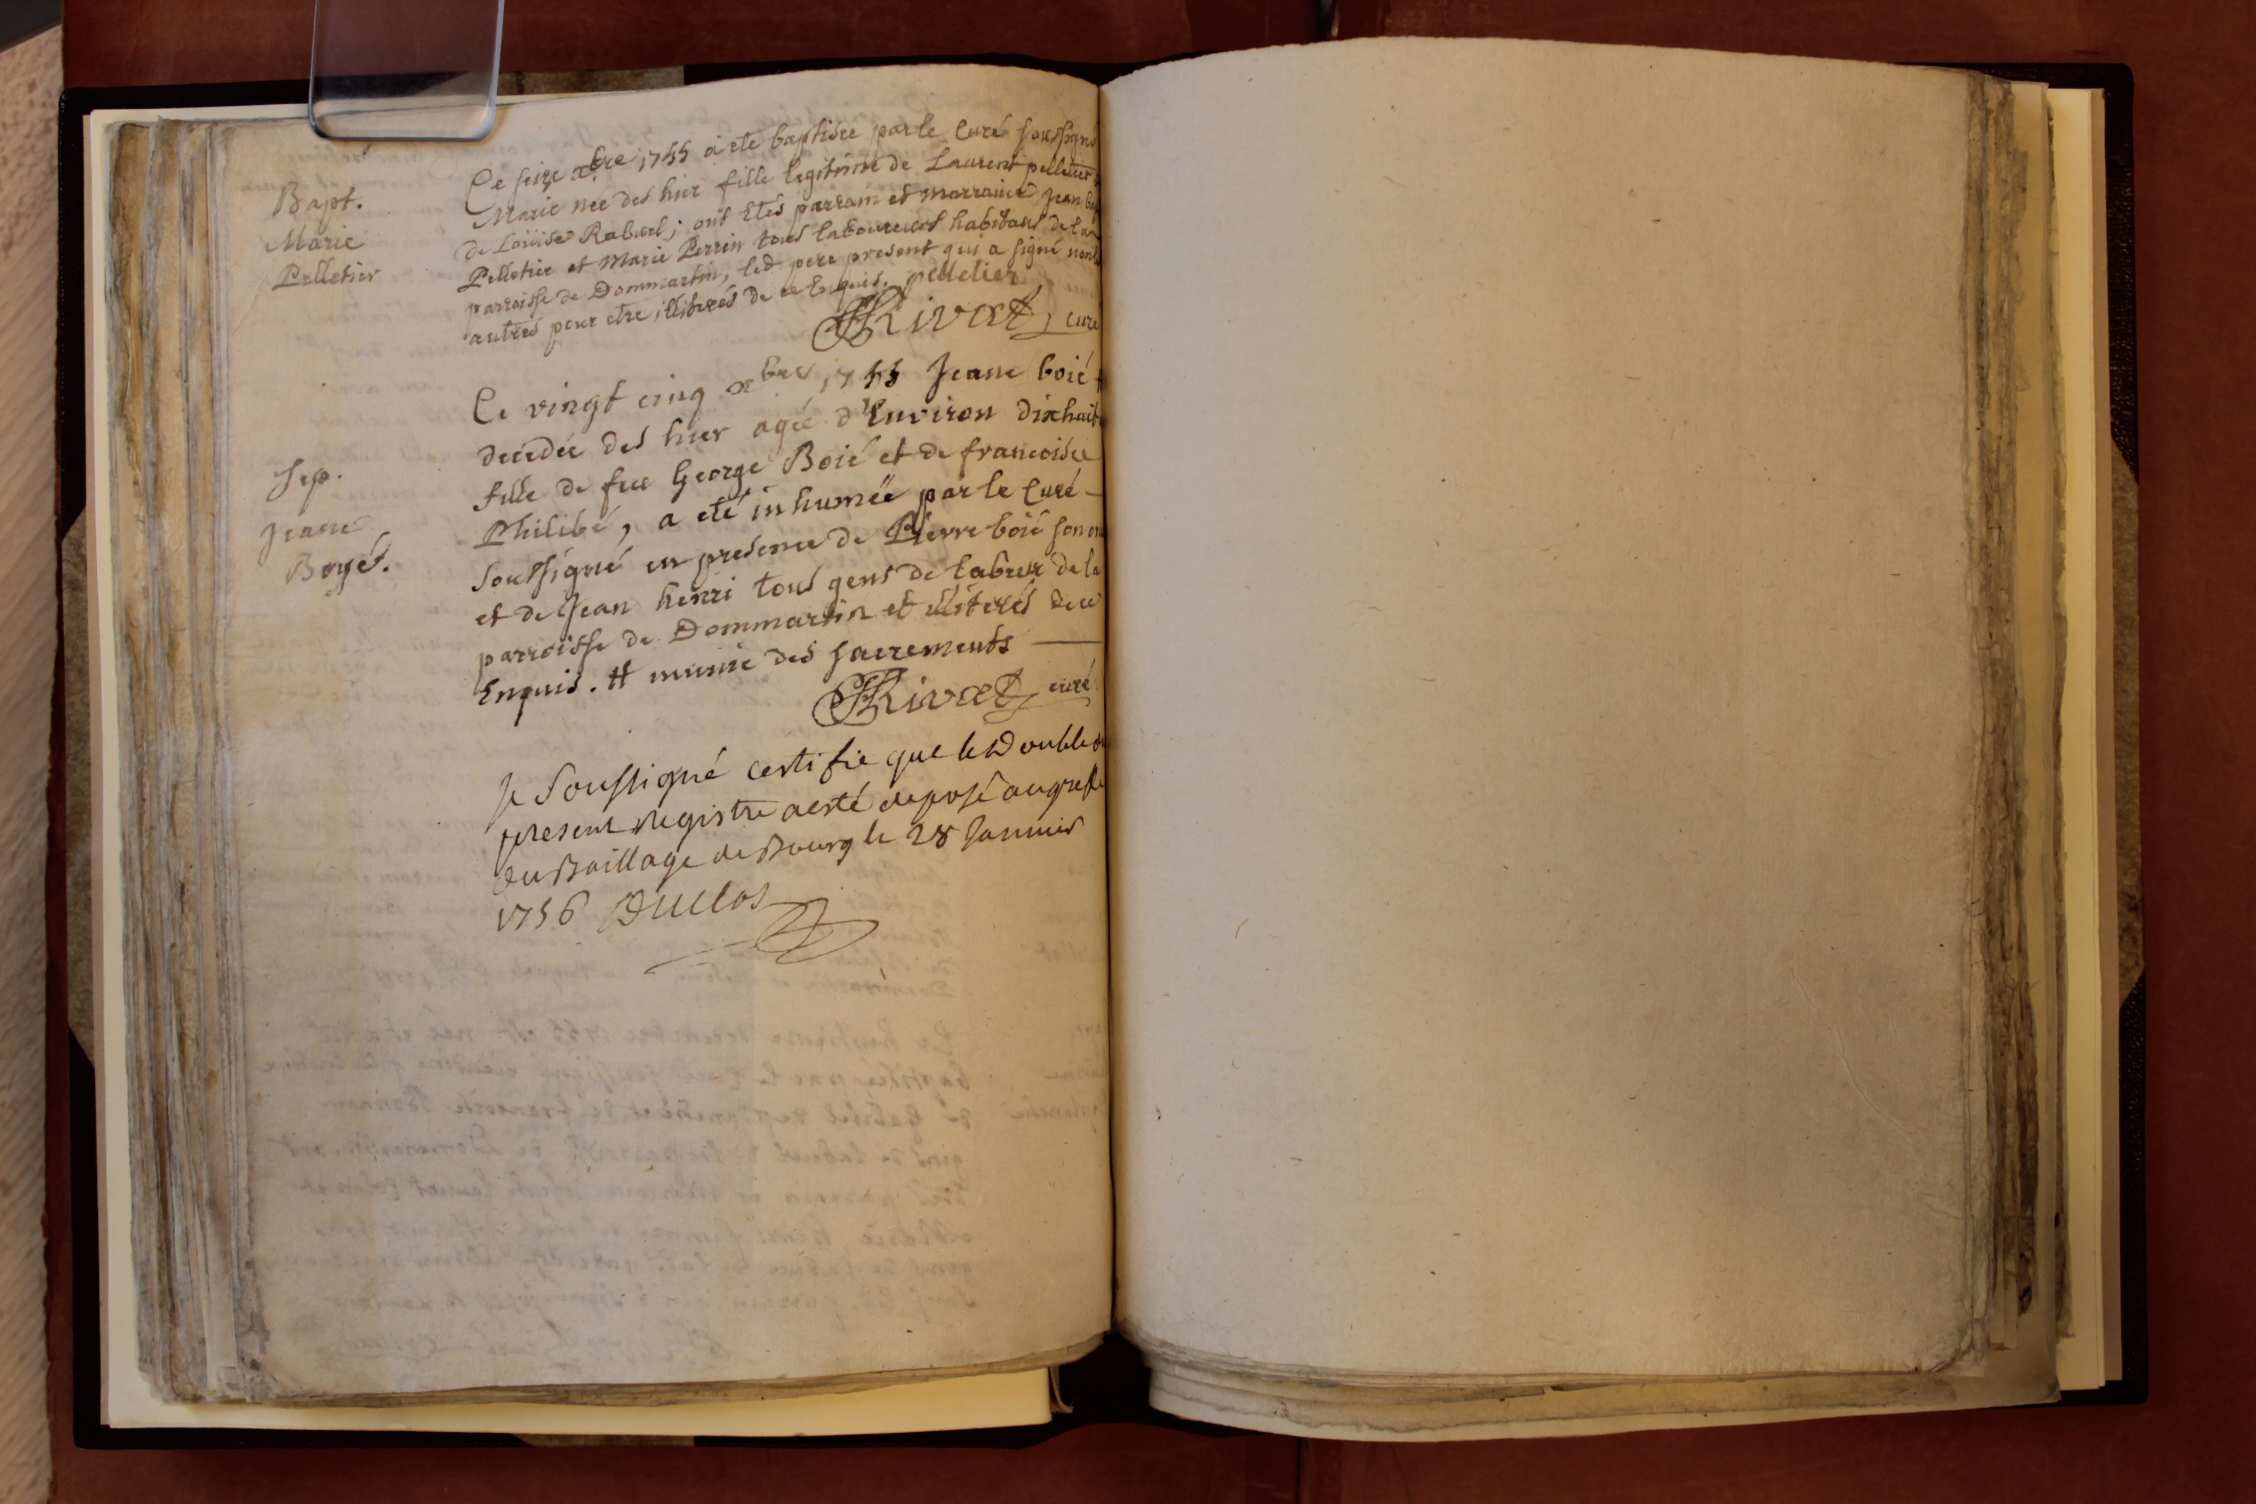 Bapt.
Marie
Pelletier
Ce seize xbre 1755 a ete baptisée par le Curé soussigné
Marie née des hier fille legitime de Laurent pelletier
de Loüise Rabuel; ont etés parrain et marraine Jean
Pelletier et Marie Perrin tous laboureurs habitans de
parroisse de Dommartin, led pere present qui a signé
autres pour etre illiterés de ce enquis. pelletier
Rivat, curé
Sep.
Jeane
Boyé.
Ce vingt cinq xbre 1755 Jeane boié #
decedée des hier agée d'Environ dixhuit
fille de feu George Boié et de francoise
Philibé, a eté inhumée par le Curé
Soussigné en presence de Pierre boié son
et de Jean henri tous gens de labeur de la
parroisse de Dommartin et illiterés de ce
Enquis. # munie des sacrements
Rivat, curé
Je Soussigné certifie que le Double
present Registre a esté deposé au greffe
du Baillage de Bourg le 28 Janvier
1756 Duclos